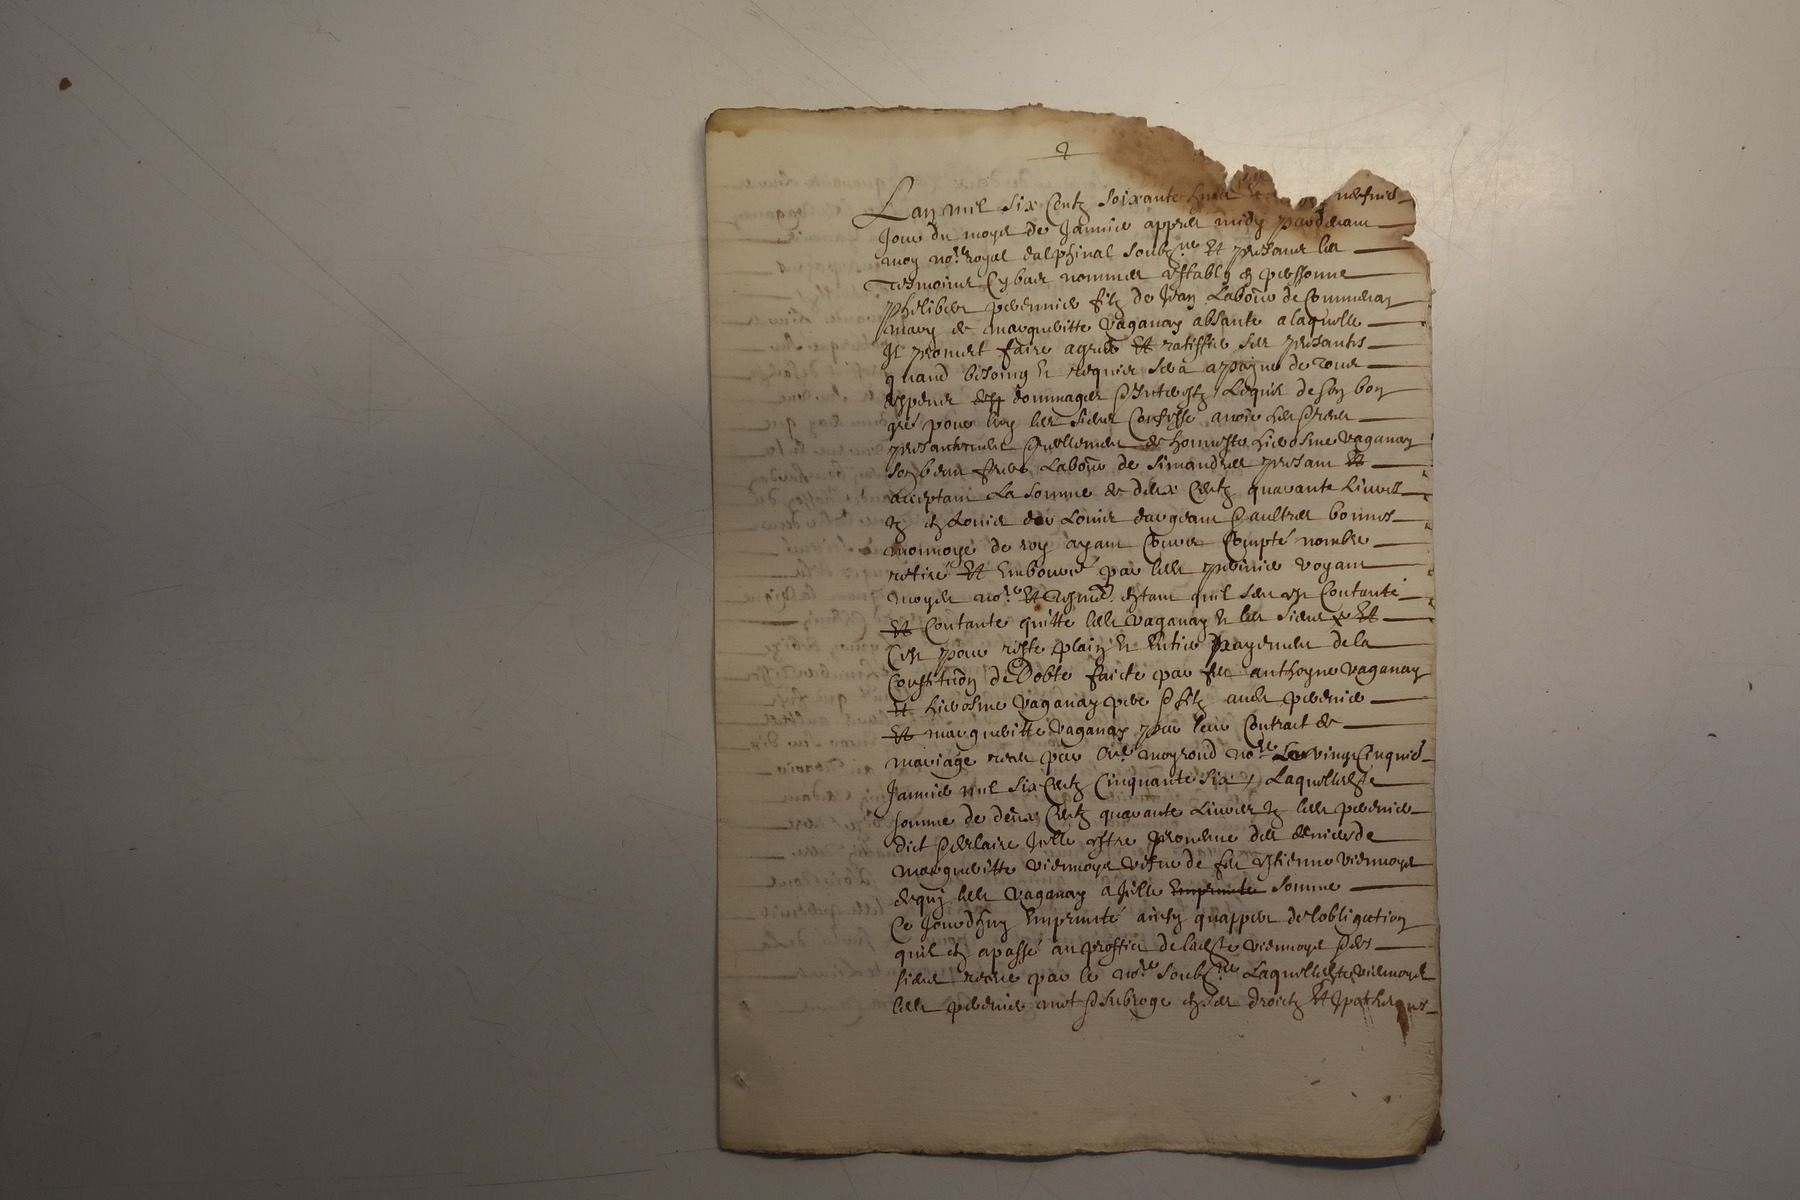 2
Lan mil six Centz soixante
Jour du moys de Janvier appres midy pardevant
moy no.re royal dalphinal soubz.ne Et presans les
tesmoins Cybas nommes estably en personne
Phelibert pervenier filz de Jean Laboūr de Commenay
mary de margueritte vaganay absante a laquelle
Il promet faire agreer Et ratiffier ses presantes
quand besoing Et requis sera a payne de tous
despens dommages Interestz Lequel de son bon
gré pour luy les siens Confesse avoir heu
presantement de honneste hierosme vaganay
son beau frere Laboūr de Simandres presant Et
acceptant La somme de deux Centz quarante Livres
tz en Louis Louis dargeant aultres bonnes
monnoye de roy ayant Cours Compté nombre
retiré Et Embourcé par led pervenier voyant
moyd no.re Et tesmoins estant quil sen est Contanté
Et Contante quitte led vaganay Et les siens Et
Cest pour reste plain Et Entier payement de la
Constituōn de Dobte faicte par feu anthoyne vaganay
Et hierosme vaganay pere filz aud pervenier
Et margueritte vaganay par leur Contract de
mariage receu par moyroud no.re Le vingt Cinquie
Janvier mil six Centz Cinquante six Laquelle
somme de deux Centz quarante Livres tz led pervenier
dict desclaire Icelle estre provenue des deniers de
margueritte viennoys vefve de feu Estienne viennoys
de qui led vaganay a Icelle Emprunte somme
Ce Jourdhuy Emprunté ainsy quappert de lobligation
quil en a passé au proffict de lad viennoys
siens receue par le no.re soubz.ne Laquelle viennoys
led pervenier met subroge en ses droictz Et Ipotheques